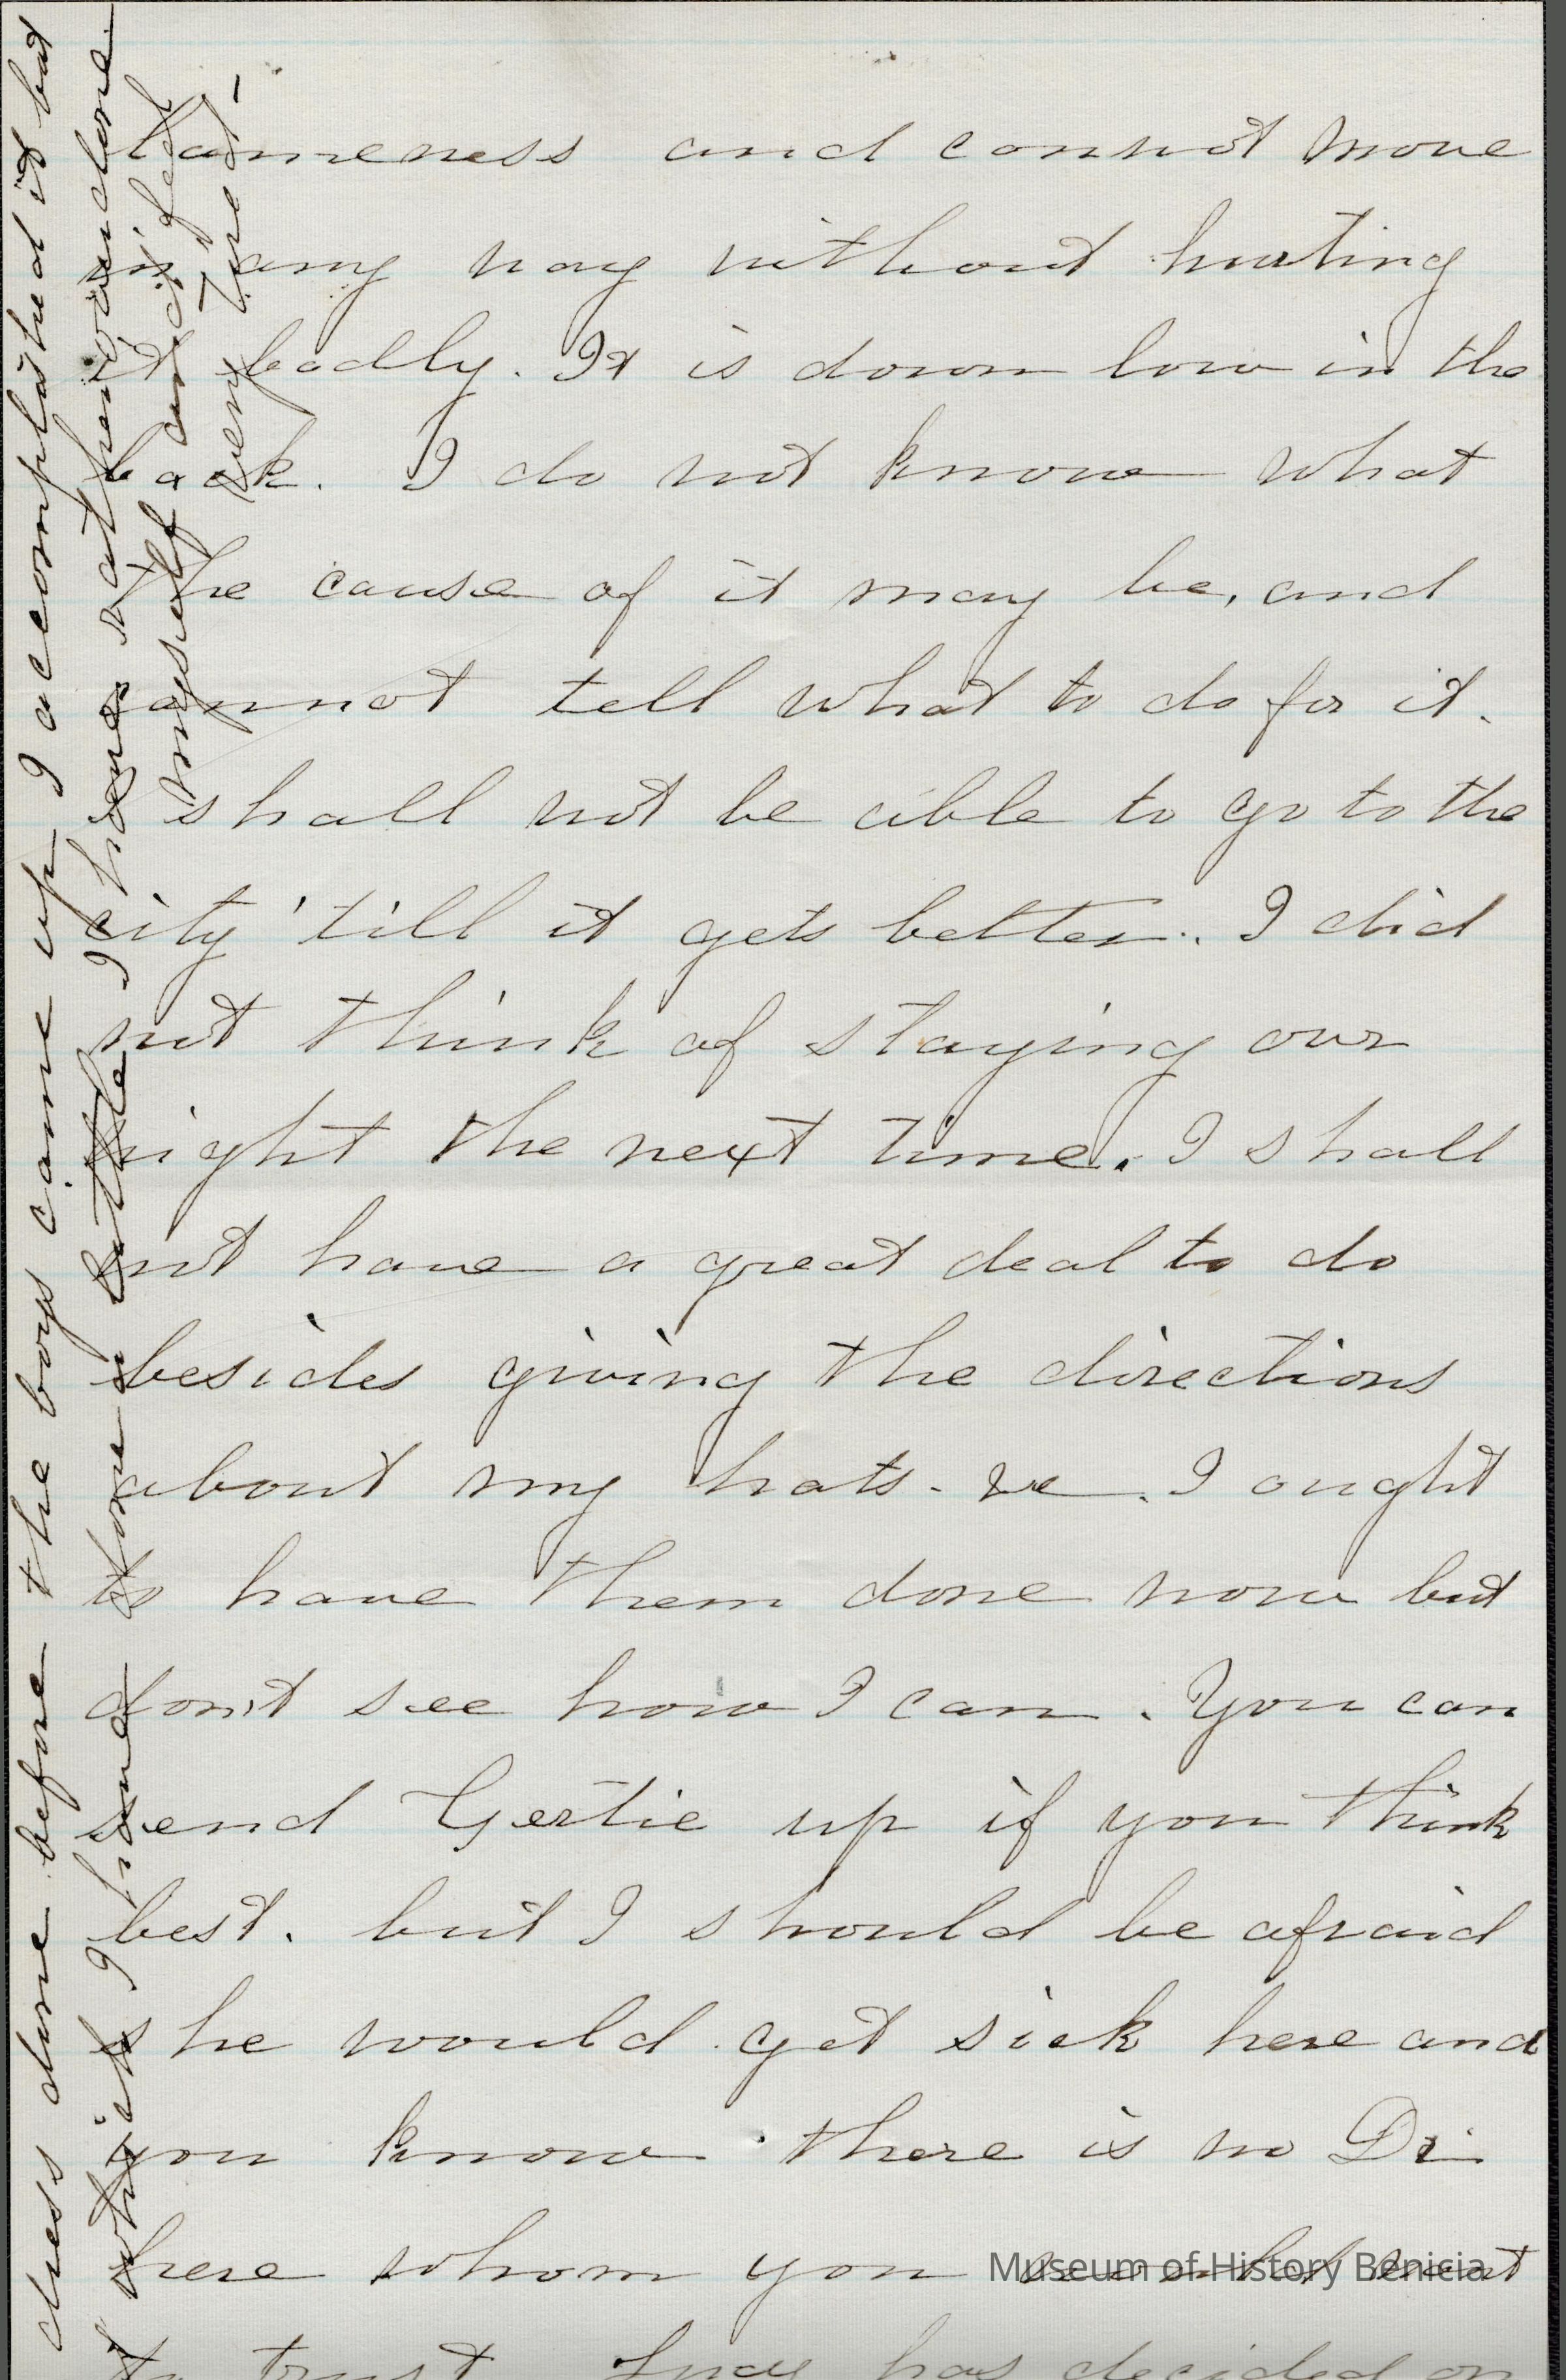 lameness and cannot move
in any way without hurting
it badly. It is down low in the
back. I do not know what
the cause of it may be, and
cannot tell what to do for it.
shall not be able to go to the
city 'till it gets better. I did
not think of staying over
night the next time. I shall
not have a great deal to do
besides giving the directions
about my hats. &c. I ought
to have them done now but
don't see how I can. You can
send Gertie up if you think
best. but I should be afraid
she would get sick here and
you know there is no Dr.
here whom you would want
to trust. has decided on
dress done before the boys came up I accomplished it but
which I have done a little I have rather overdone
myself and feel
very tired-
Museum of History Benicia